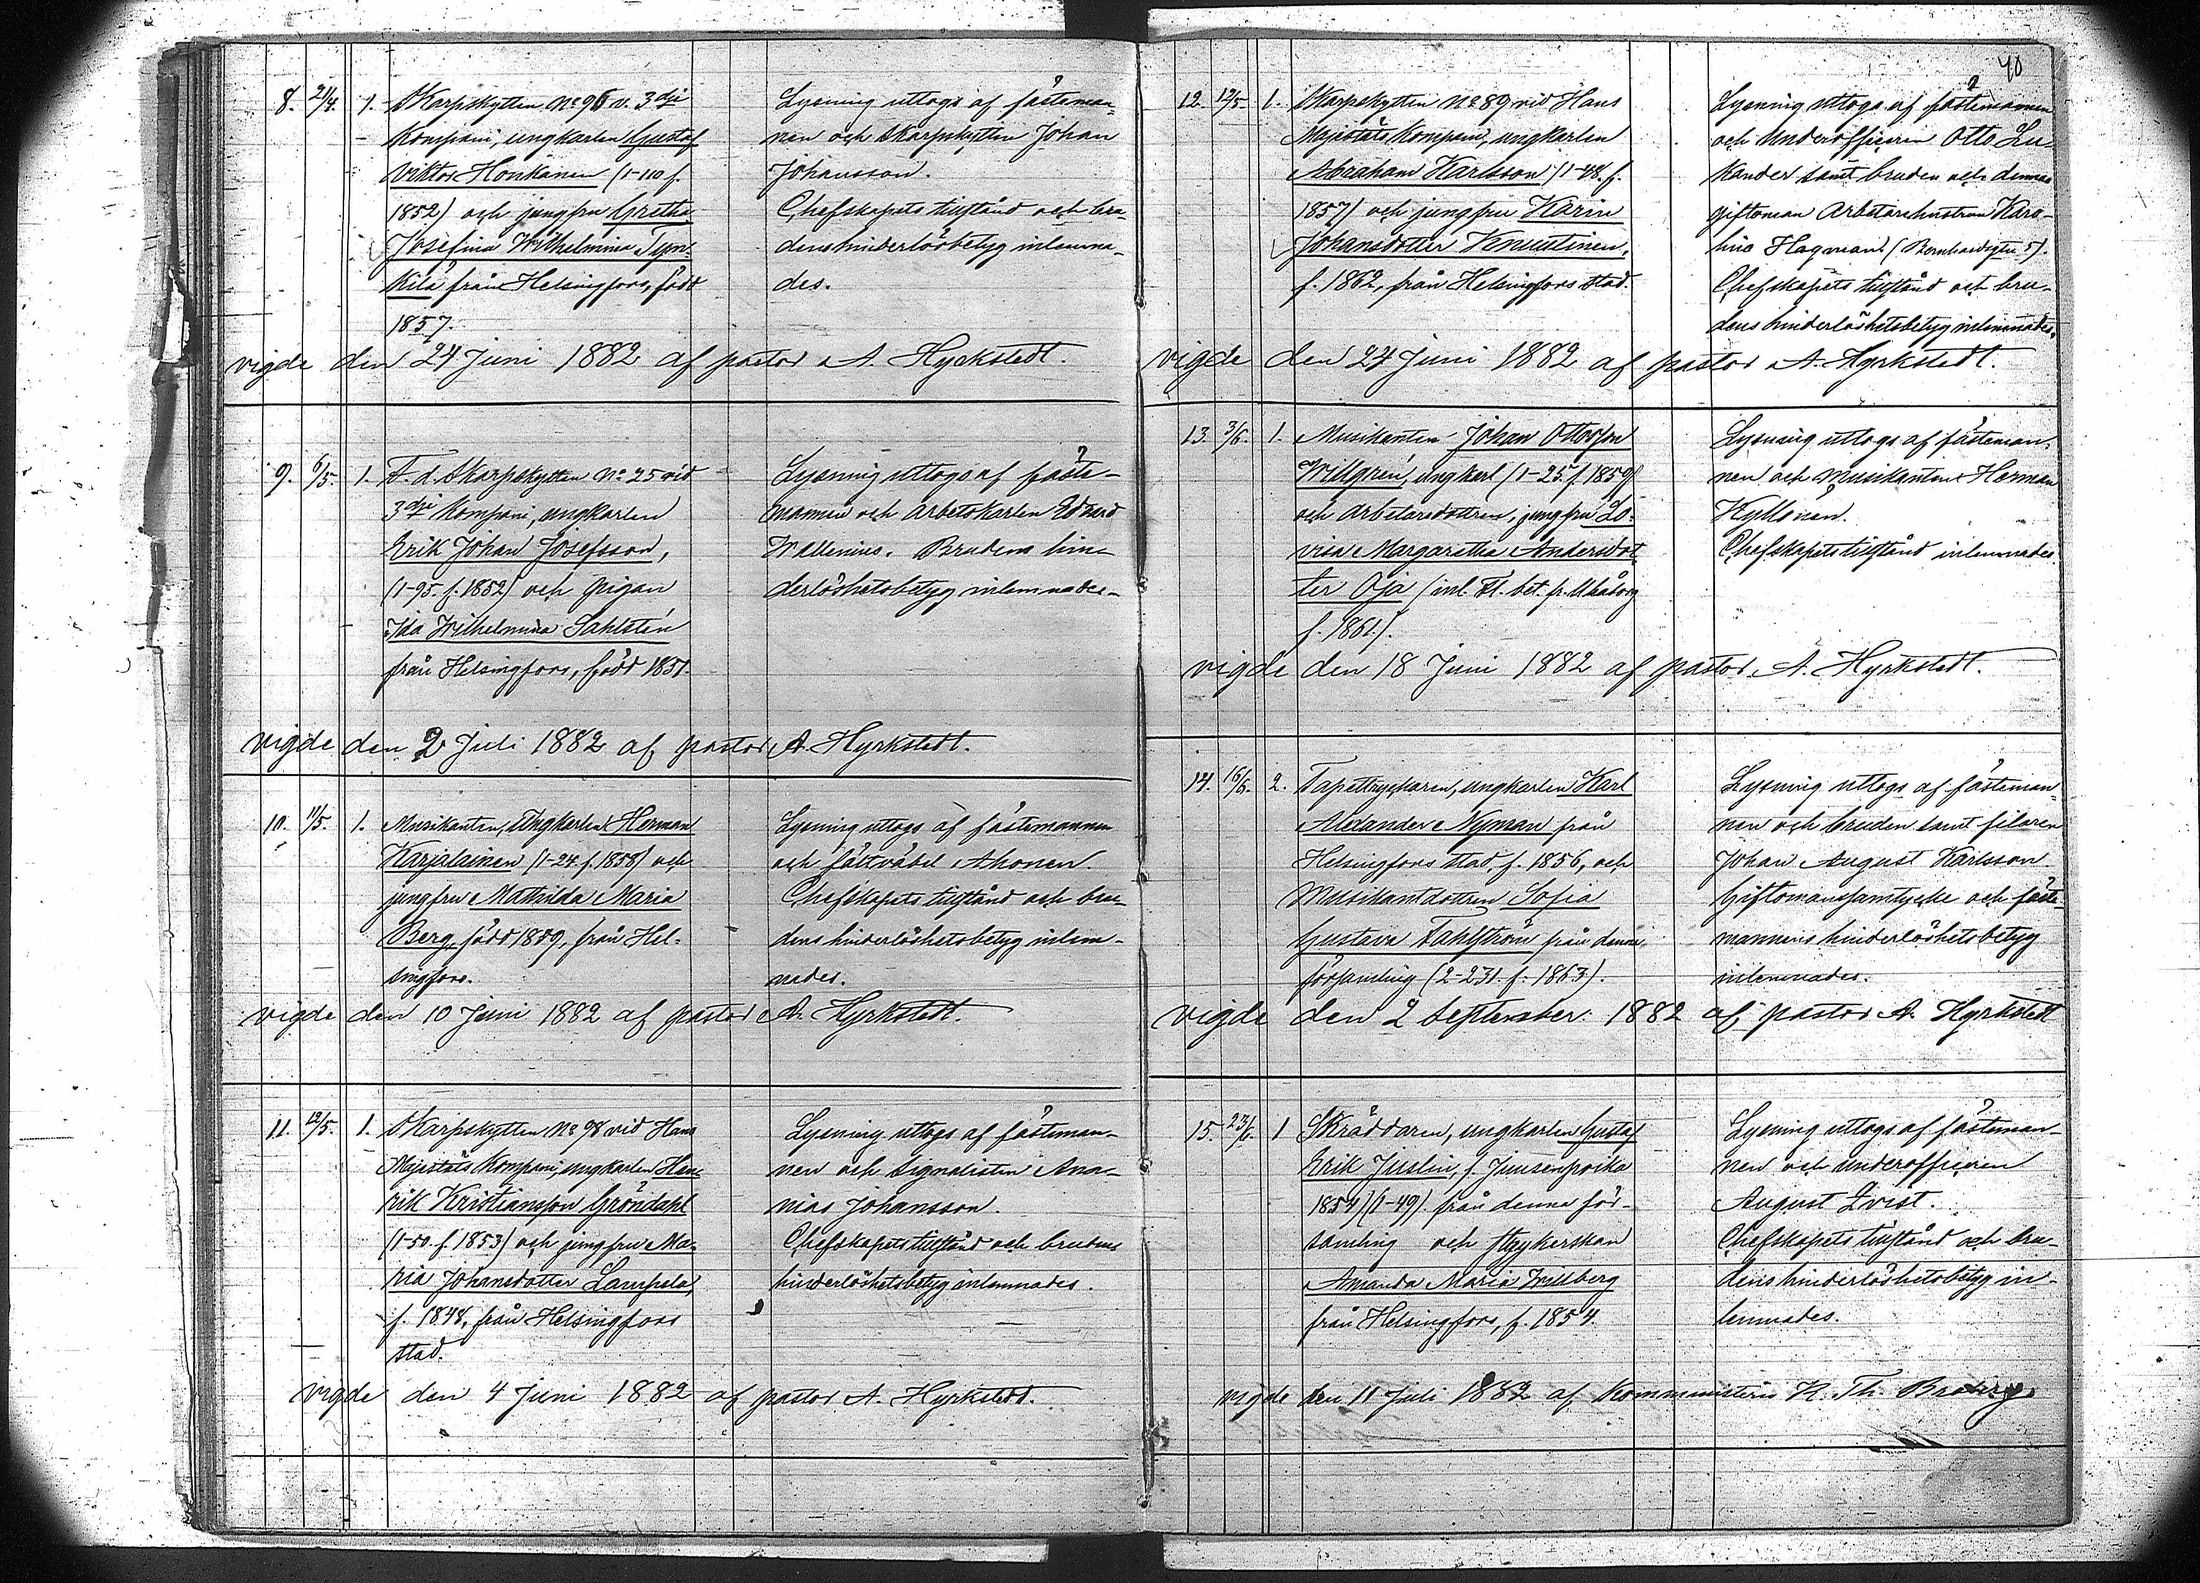 8. 21/4. 1. Skarpskytten No 96 v. 3dje
Kompani, ungkarlen Gustaf
Viktor Honkanen (1-110 f.
1852) och jungfru Gretha
Josefina Wilhelmina Tyn-
kilä från Helsingfors, född
1857.
Lysning uttogs af fästeman-
nen och skarpskytten Johan
Johansson.
Chefskapets tillstånd och bru-
dens hinderlösbetyg inlemna-
des.
vigde den 24 Juni 1882 af pastor A. Hyrkstedt.
9. 6/5. 1. F. d. Skarpskytten No 25 vid
3dje Kompani, ungkarlen
Erik Johan Josefsson,
(1-95. f. 1852) och pigan
Ida Wilhelmina Sahlstén
från Helsingfors, född 1851.
Lysning uttogs af fäste-
mannen och arbetskarlen Edvard
Wallenius. Brudens hin-
derlöshetsbetyg inlemnades.
vigde den 2 Juli 1882 af pastor A. Hyrkstedt.
10. 11/5. 1. Musikanten, Ungkarlen Herman
Karjalainen (1-24. f. 1858) och
jungfru Mathilda Maria
Berg, född 1859, från Hel-
singfors.
Lysning uttogs af fästemannen
och fältväbel Ahonen.
Chefskapets tillstånd och bru-
dens hinderlöshetsbetyg inlem-
nades.
vigde den 10 Juni 1882 af pastor A. Hyrkstedt.
11. 12/5. 1. Skarpskytten No 98 vid Hans
Majestäts Kompani, ungkarlen Hen-
rik Kristiansson Gröndahl
(1-50. f. 1853) och jungfru Ma-
ria Johansdotter Lampela,
f. 1848, från Helsingfors
stad.
Lysning uttogs af fästeman-
nen och signalisten Ana-
nias Johansson.
Chefskapets tillstånd och brudens
hinderlöshetsbetyg inlemnades.
vigde den 4 Juni 1882 af pastor A. Hyrkstedt.
40
12. 12/5. 1. Skarpskytten No 89 vid Hans
Majestäts Kompani, ungkarlen
Abraham Karlsson (1-48. f.
1857) och jungfru Karin
Johansdotter Knuutinen,
f. 1862, från Helsingfors stad.
Lysning uttogs af fästemannen
och Underofficeren Otto Lu-
kander samt bruden och dennas
giftoman Arbetarehustrun Karo-
lina Hagman (Bernhardsgtn 5).
Chefskapets tillstånd och bru-
dens hinderlöshetsbetyg inlemnades.
vigde den 24 Juni 1882 af pastor A. Hyrkstedt.
13. 3/6. 1. Musikanten Johan Ottosson
Willgren, ungkarl (1-25. f. 1859)
och Arbetaredottren, jungfru Lo-
visa Margaretha Andersdot
ter Oja (inl. fl. bet. fr. Uleåborg
f. 1861).
Lysning uttogs af fästeman-
nen och Musikanten Herman
Kyllönen.
Chefskapets tillstånd inlemnades.
vigde den 18 Juni 1882 af pastor A. Hyrkstedt.
14. 16/6. 2. Tapettryckaren, ungkarlen Karl
Alexander Nyman från
Helsingfors stad, f. 1856, och
Musikantdottren Sofia
Gustava Fahlström från denna
församling (2-231. f. 1863).
Lysning uttogs af fästeman-
nen och bruden samt filaren
Johan August Karlsson.
Giftomanssamtycke och fäste-
mannens hinderlöshetsbetyg
inlemnades.
vigde den 2 September 1882 af pastor A. Hyrkstedt
15. 23/6. 1 Skräddaren, ungkarlen Gustaf
Erik Juslin, f.
1854) (1-49) från denna för-
samling och strykerskan
Amanda Maria Willberg
från Helsingfors, f. 1854.
Lysning uttogs af fästeman-
nen och underofficeren
August Qvist.
Chefskapets tillstånd och bru-
dens hinderlöshetsbetyg in-
lemnades.
vigde den 11 Juli 1882 af Kommministern K. Th. Broberg